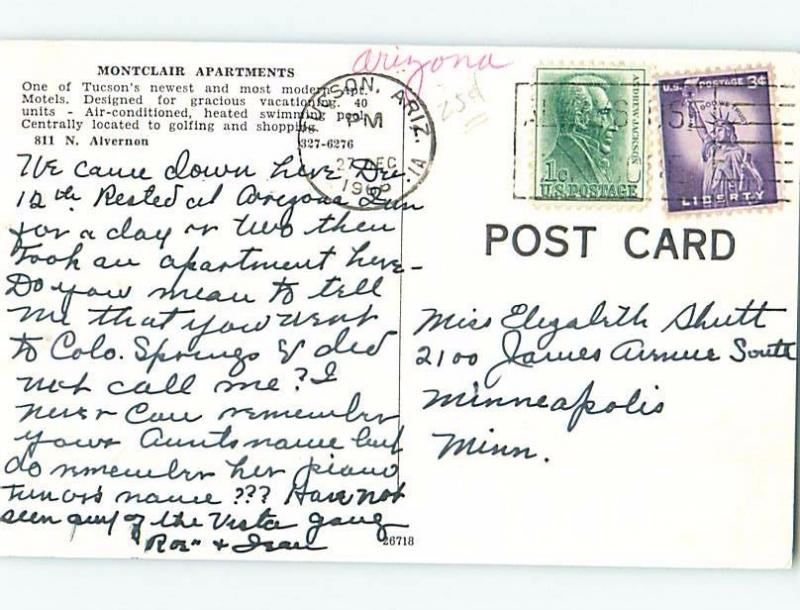 MONTCLAIR APARTMENTS
One of Tucson's newest and most modern Apt.
Motels. Designed for gracious vacationing. 40
units - Air-conditioned, heated swimming pool.
Centrally located to golfing and shopping.
811 N. Alvernon 327-6276
arizona
25¢
TUCSON, ARIZ.
PM
27 DEC
196
1A
ANDREW JACKSON
1c.
U.S. POSTAGE
U.S. POSTAGE 3¢
IN GOD WE TRUST
LIBERTY
POST CARD
We came down here Dec.
12th Rested at Arizona Inn
for a day or two then
Took an apartment here -
Do you mean to tell
me that you went
to Colo. Springs & did
not call me? I
never can remember
your Aunts name but
do remember her piano
Tunors name ??? Have not
seen any of the Vista gang
"Roz" +
Miss Elizabeth Shutt
2100 James Avenue South
Minneapolis
Minn.
26718